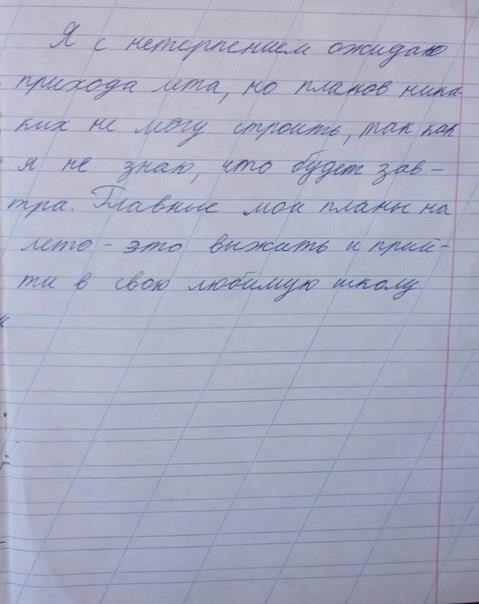 Я с нетерпением ожидаю
прихода лета, но планов ника-
ких не могу строить, так как
я не знаю, что будет зав-
тра. Главные мои планы на
лето - это выжить и прий-
ти в свою любимую школу.